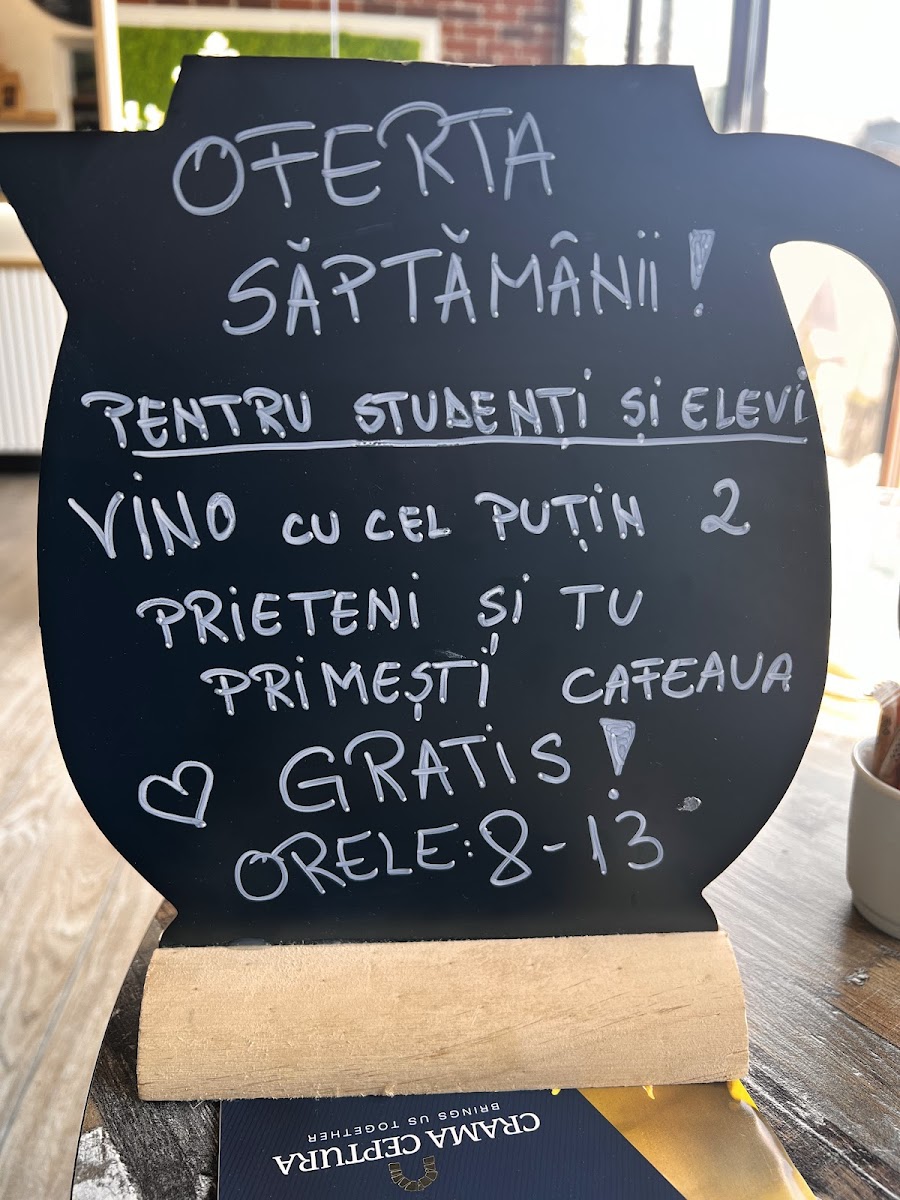 OFERTA
SĂPTĂMÂNII!
PENTRU STUDENȚI ȘI ELEVI
VINO CU CEL PUȚIN 2
PRIETENI ȘI TU
PRIMEȘTI CAFEAUA
♡ GRATIS!
ORELE: 8-13
CRAMA CEPTURA
BRINGS US TOGETHER